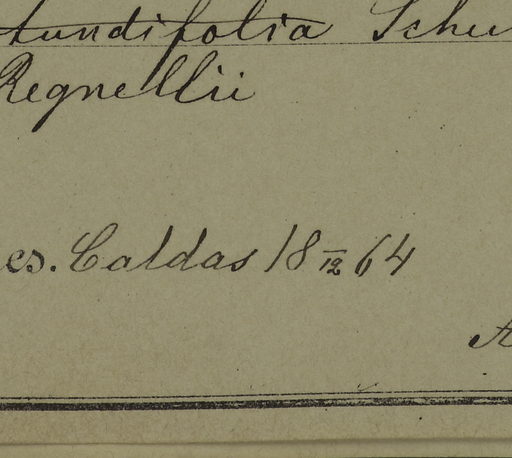 tundifolia Schu
Regnellii
es. Caldas 18 12 64
A